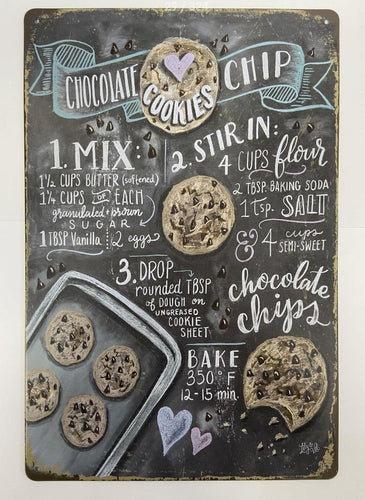 CHOCOLATE CHIP
COOKIES
1. MIX:
1 1/2 CUPS BUTTER (softened)
1 1/4 CUPS OF EACH
granulated + brown
SUGAR
1 TBSP Vanilla 2 eggs
2. STIR IN:
4 CUPS flour
2 TBSP BAKING SODA
1 tsp. SALT
& 4 cups
SEMI-SWEET
chocolate
chips
3. DROP
rounded TBSP
of DOUGH on
UNGREASED
COOKIE
SHEET
BAKE
350°F
12-15 min.